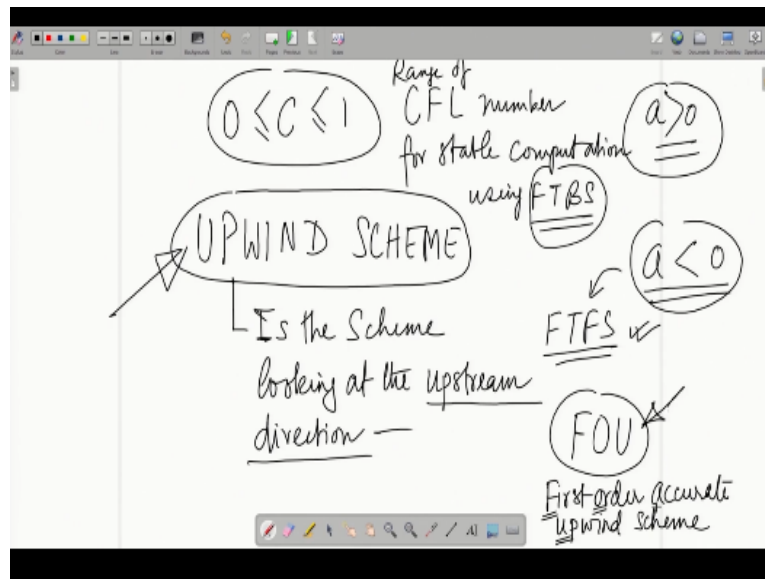 0 ≤ C ≤ 1
Range of
CFL number
for stable computation
using FTBS
a>0
UPWIND SCHEME
Is the Scheme
looking at the upstream
direction —
a < 0
FTFS
FOU
First order accurate
upwind scheme